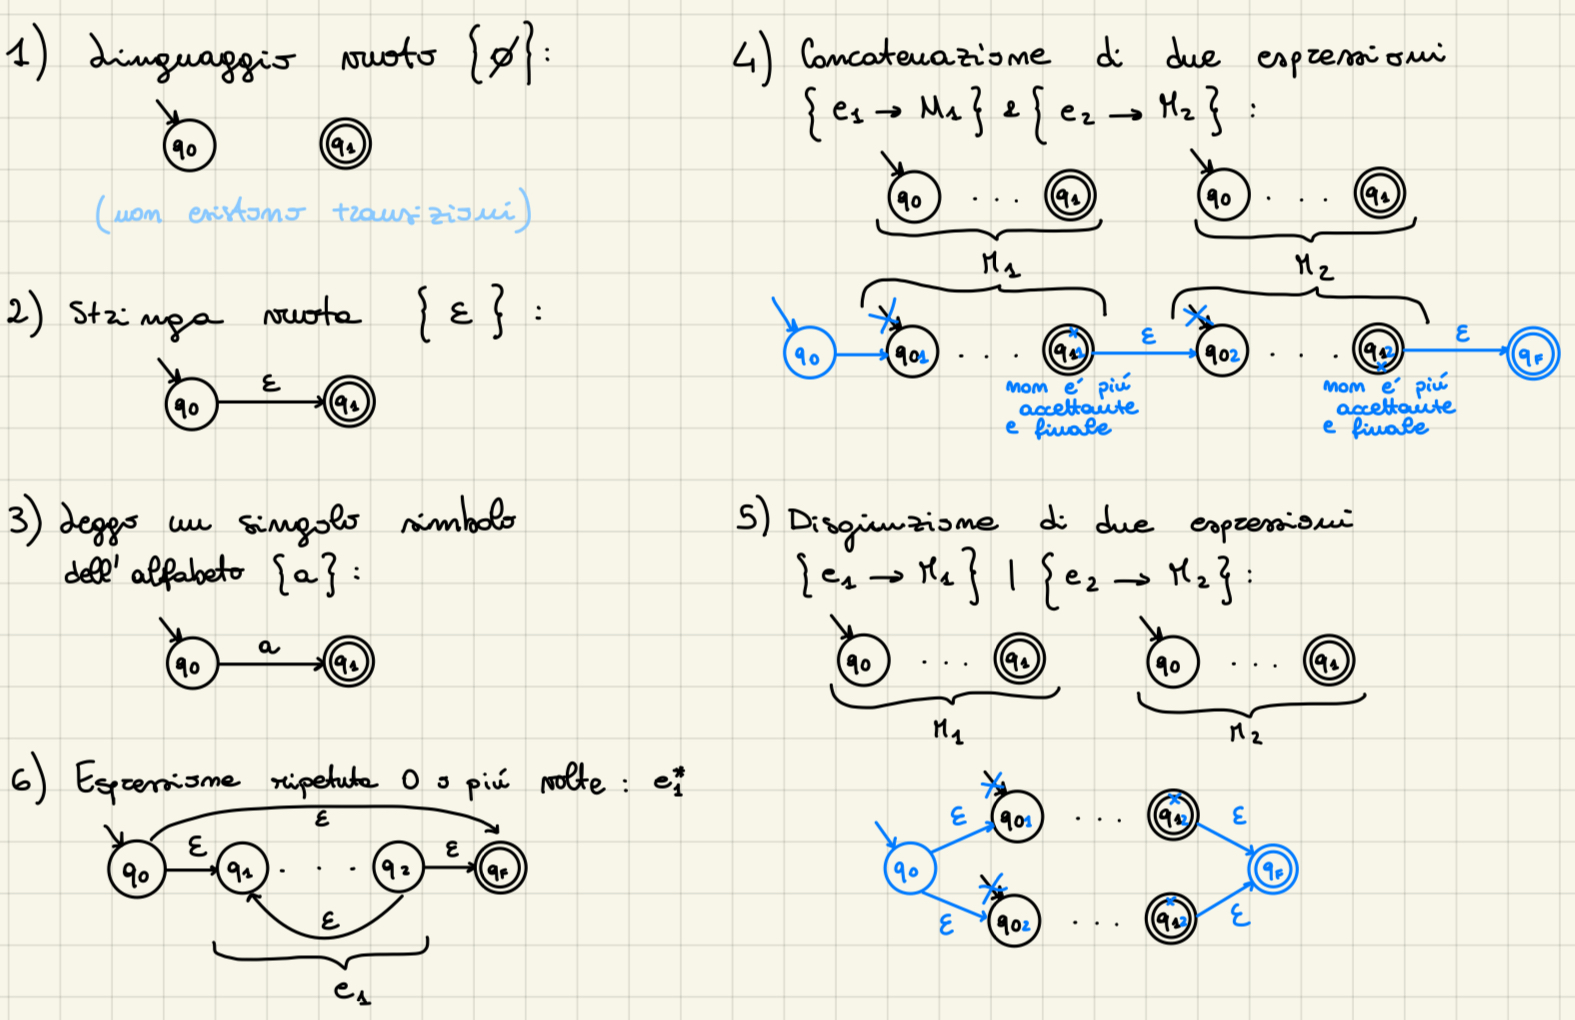 1) Linguaggio vuoto {∅}:
q0 q1
(non esistono transizioni)
2) Stringa vuota { ε } :
q0 ε q1
3) Leggo un singolo simbolo
dell'alfabeto {a}:
q0 a q1
6) Espressione ripetuta 0 o piú volte : e1*
ε
q0 ε q1 . . . q2 ε qF
ε
e1
4) Concatenazione di due espressioni
{ e1 → M1 } e { e2 → M2 } :
q0 . . . q1 q0 . . . q1
M1 M2
q0 q01 . . . q11 ε q02 . . . q12 ε qF
non é piú non é piú
accettante accettante
e finale e finale
5) Disgiunzione di due espressioni
{ e1 → M1 } | { e2 → M2 } :
q0 . . . q1 q0 . . . q1
M1 M2
ε q01 . . . q12 ε
q0 qF
ε q02 . . . q12 ε